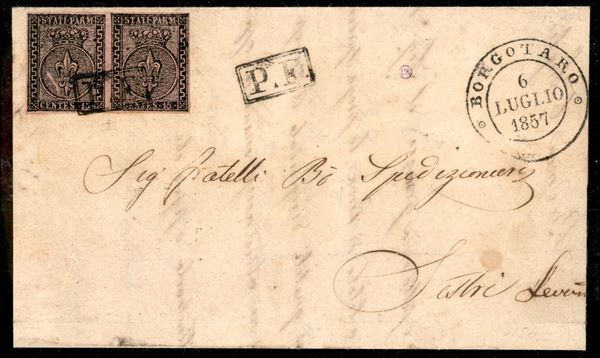 STATI PARM STATI PARM
CENTES. 15 CENTES. 15
P.P.
BORGOTARO
6
LUGLIO
1857
Sig. Fratelli Bò Spedizionieri
Sestri Levante